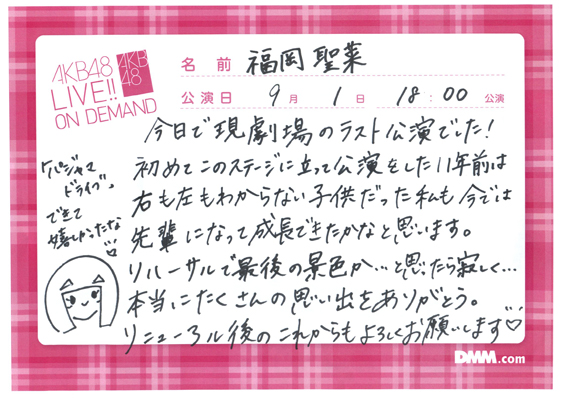 AKB48
LIVE!!
ON DEMAND
AKB
48
名前 福岡聖菜
公演日 9月 1日 18:00 公演
今日で現劇場のラスト公演でした！
初めてこのステージに立って公演をした11年前は
右も左もわからない子供だった私も今では
先輩になって成長できたかなと思います。
リハーサルで最後の景色か…と思たら寂しく…
本当にたくさんの思い出をありがとう。
リニューアル後のこれからもよろしくお願いします♡
「パジャマ
ドライブ」
できて
嬉しかったな
♡
DMM.com